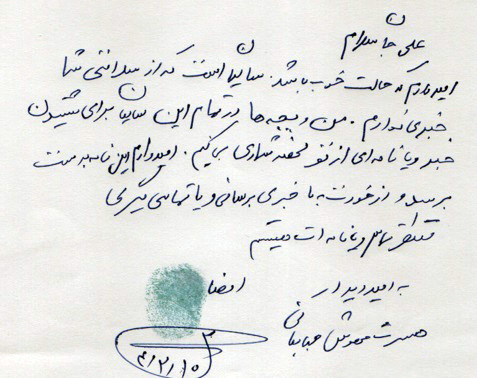 علی جان سلام
امیدوارم که حالت خوب باشد. سالیان است که از سلامتی شما
خبری ندارم. من و بچه ها در تمام این سالیان برای شنیدن
خبر و یا نامه ای از تو لحظه شماری می کنیم. امیدوارم این نامه بدستت
برسد و از خودت به ما خبری برسانی و یا تماسی بگیری
منتظر تماس و یا نامه ات هستیم
به امید دیدار
امضا
همسرت مهوش